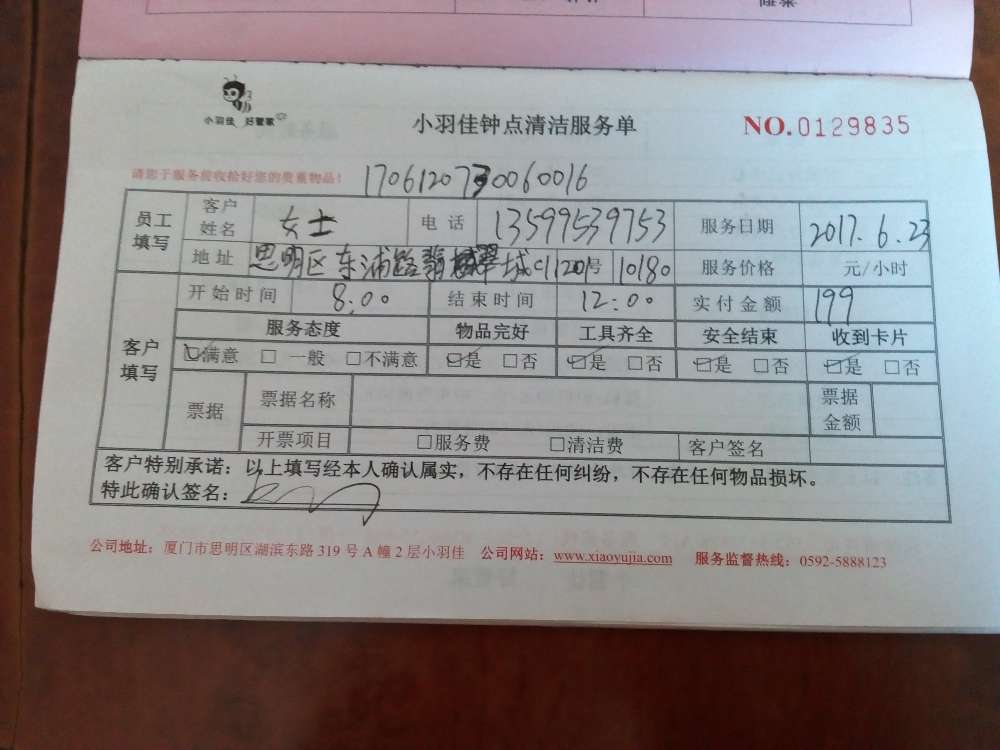 小羽佳 好管家
小羽佳钟点清洁服务单
NO.0129835
请您于服务前收拾好您的贵重物品！
员工填写 客户姓名 女士 电话 13599539753 服务日期 2017.6.23
地址 思明区东浦路 城 1120号 10180 服务价格 元/小时
客户填写 开始时间 8:00 结束时间 12:00 实付金额 199
服务态度 物品完好 工具齐全 安全结束 收到卡片
☑满意 □一般 □不满意 ☑是 □否 ☑是 □否 ☑是 □否 ☑是 □否
票据 票据名称 票据金额
开票项目 □服务费 □清洁费 客户签名
客户特别承诺：以上填写经本人确认属实，不存在任何纠纷，不存在任何物品损坏。
特此确认签名：
公司地址：厦门市思明区湖滨东路 319 号 A 幢 2 层小羽佳 公司网站：www.xiaoyujia.com 服务监督热线：0592-5888123